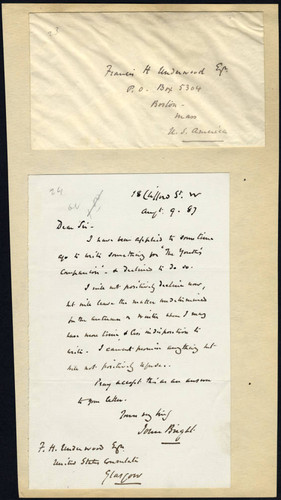 Francis H Underwood Esq
P.O. Box 5304
Boston
Mass
U.S. America
18 Clifford St. W
Aug. 9. 87
Dear Sir.
I have been applied to some time
ago to write something for "The Youth's
Companion". & declined to do so.
I will not positively decline now,
but will leave the matter undetermined
for the autumn or winter when I may
have more time & less indisposition to
write. I cannot promise anything but
will not positively refuse.
Pray accept this as an answer
to your letter.
Yours very truly
John Bright.
F. H. Underwood Esq
United States Consulate
Glasgow